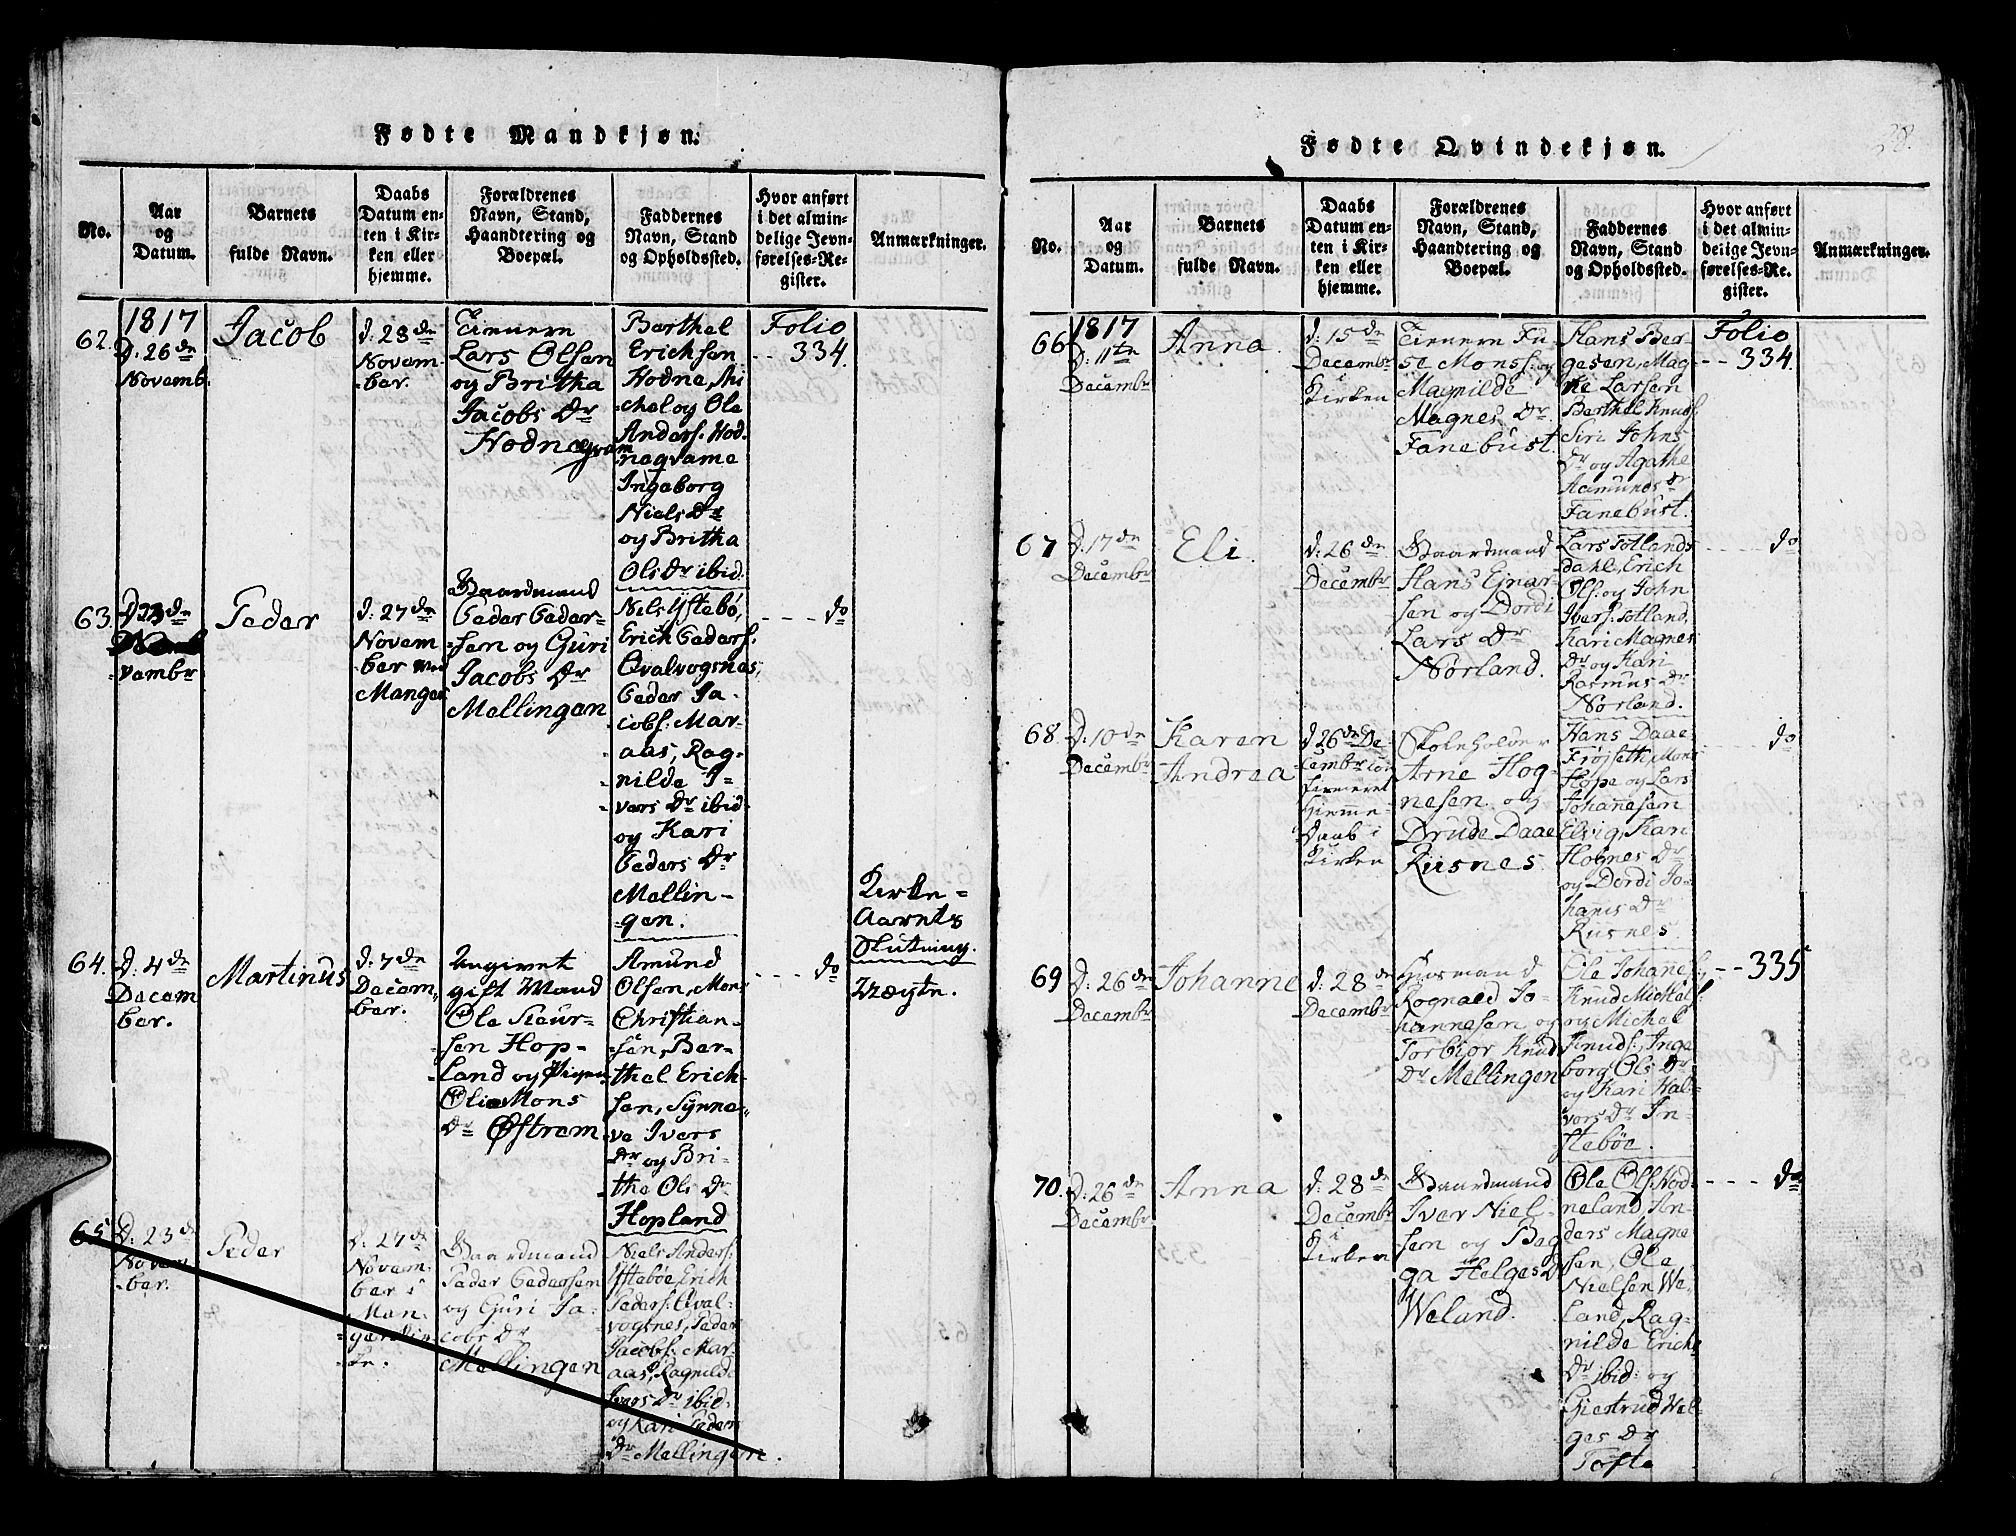 Fødte Mandkjøn.
No.
Aar
og
Datum.
Barnets
fulde Navn.
Daabs
Datum en-
ten i Kir-
ken eller
hjemme.
Forældrenes
Navn, Stand,
Haandtering og
Boepæl.
Faddernes
Navn, Stand
og Opholdssted.
Hvor anført
i det almin-
delige Jevn-
førelses-Re-
gister.
Anmærkninger.
62.
1817
D: 26 de
Novemb.
Jacob
d: 28 de
Novem-
ber.
Tienere
Lars Olsen
og Britha
Jacobs Dr
Hodneqvam
Barthel
Erichsen
Hodne, Mi
chel og Ole
Anders: Hod.
neqvame
Ingeborg
Niels Dr
og Britha
Ols Dr ibid.
Folio
-- 334.
63.
D: 23 de
vembr
Peder
d: 27 de
Novem
ber
Manger
Gaardmand
Peder Peder-
sen og Guri
Jacobs Dr
Mellingen
Nels Ystebö,
Erich Peders:
Qvalvogsnes,
Peder Ja-
cobs: Mar-
aas, Rag-
nilde I-
vers Dr ibid
og Kari
Peders Dr
Mellin-
gen.
---- do
Kirke-
Aarets
Slutning.
64.
D: 4 de
Decem
ber.
Martinus
d: 7 de
Decem-
ber.
Angivet
gift Mand
Ole Siur-
sen Hop-
land og Pigen
Olie Mons
Dr Østrem
Amund
Olsen, Mons
Christian-
sen, Ber-
thel Erich-
sen, Synne-
ve Ivers
Dr og Bri-
the Ols Dr
Hopland
---- do
65
D: 23 d
Novem
ber.
Peder
d: 27 de
Novem-
ber i
Man-
ger
Gaardmand
Peder Pedersen
og Guri Ja-
cobs Dr
Mellingen
Niels Anders:
Ystebøe, Erich
Peders: Qval-
vogsnes, Peder
Jacobs: Mar-
aas, Ragnilde
Ivers Dr ibid:
og Kari Peders
Dr Mellingen.
Fødte Qvindekjøn.
28.
No.
Aar
og
Datum.
Barnets
fulde Navn.
Daabs
Datum en-
ten i Kir-
ken eller
hjemme.
Forældrenes
Navn, Stand,
Haandtering og
Boepæl.
Faddernes
Navn, Stand
og Opholdssted.
Hvor anført
i det almin-
delige Jevn-
førelses-Re-
gister.
Anmærkninger.
66
1817
D: 11te
Decembr
Anna
d: 15 de
Decembr
Kirken
Tienere
Mons: og
Magnilde
Magnes Dr
Fanebust.
Hans Ber-
gesen, Mag
ne Larsen
Barthel Knuds:
Siri Johns
Dr og Agathe
Aamunds Dr
Fanebust.
Folio
-- 334.
67
D: 17 de
Decembr
Eli
d: 26 de
Decembr
Gaardmand
Hans Ejnar-
sen og Dordi
Lars Dr
Nörland.
Lars Totlands
dahl, Erich
Ols: og John
Ivers: Totland,
Kari Magnes
Dr og Kari
Rasmus Dr
Nørland.
---- do
68
D: 10 de
Decembr
Karen
Andrea
d 26 de De
cembr con
firmeret
Hjemme-
Daab i
Kirken
Skoleholder
Arne Hog-
nesen og
Drude Daae
Risnes.
Hans Daae
Frøjseth, Mons
Hope og Lars
Johannesen
Elvig, Kari
Hognes Dr
og Dordi Jo-
hanes Dr
Risnes.
---- do
69
D: 26 de
Decembr
Johanne
d: 28 de
Decembr
Huusmand
Rognald Jo-
hannesen og
Torbior Knud
Dr Mellingen
Ole Johannes:,
Knud Michel
og Michel
Knuds:, Inge
borg Ols Dr
og Kari Hal-
vors Dr In-
stebøe.
-- 335
70.
D: 26 de
Decembr
Anna
d: 28 de
Decembr
i
Kirken
Gaardmand
Iver Niel-
sen og Bag
ga Helges D
Weland.
Ole Ols: Hod-
neland, An-
ders Magne
sen, Ole
Nielsen We-
land, Rag-
nilde Erichs
Dr ibid: og
Giertrud Hel-
ges Dr
Tofte
---- do